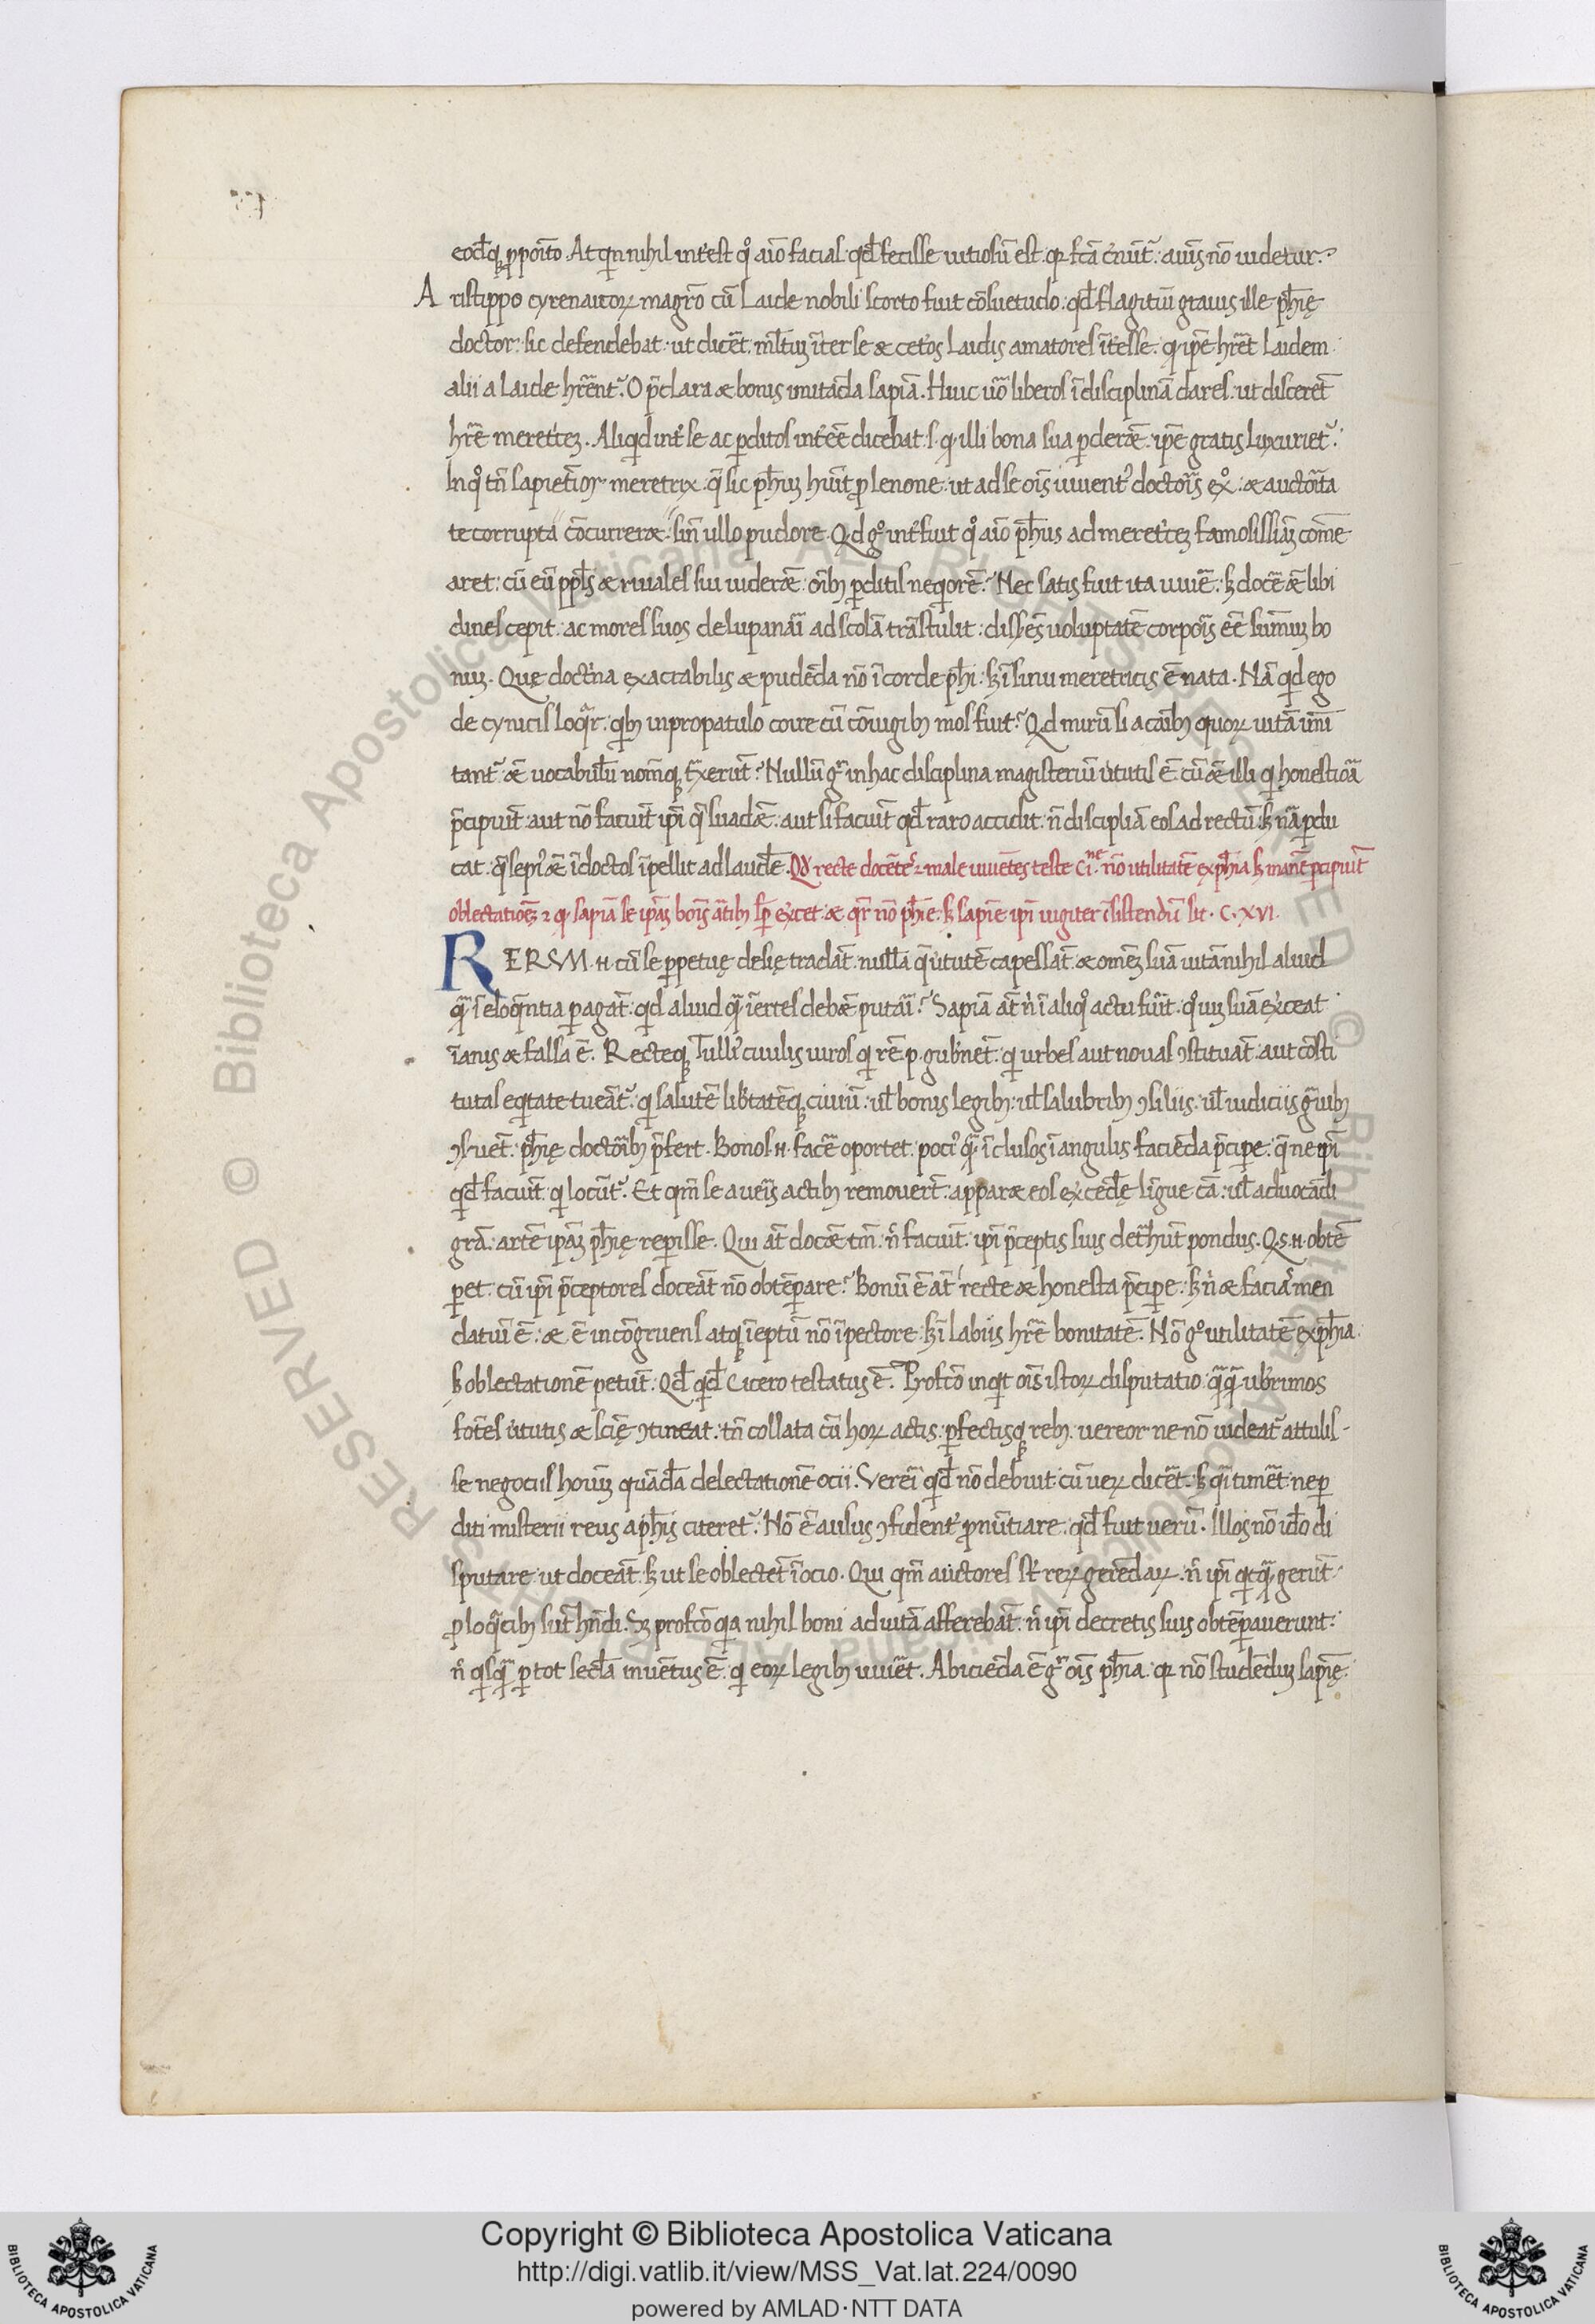 eodēq; p̄poīto. Atqn nihil int'est qͦ aīo facias qd̄ fecisse uitiosū est. qr fc̄a c'nūt². aīus nō uidetur.
A ristippo cyrenaicoꝝ magr̄o cū Laide nobili scorto fuit cōsuetudo. qd̄ flagitiū grauis ille ph̄ię
doctor: sic defendebat. ut dicēt. ml̄tuꝫ īter se & cet'os Laidis amatores īt'esse. ꝙ ip̄e hr̄et Laidem.
alii a Laide hr̄ent². O p̄clara & bonis imitāda sapiā. Huic ūo liberos ī disciplinā dares. ut discerēt
hr̄e meret'ceꝫ. Aliqd int' se ac ꝑditos int'ēe dicebat. s. ꝙ illi bona sua ꝑderēt. ip̄e gratis luxuriet².
In qͦ tn̄ sapiētior meretrix. q̄ sic ph̄uꝫ hūit ꝓ lenone. ut ad se oīs iuuent² doctoīs exͦ. & auctōita
te corrupta cōcurreret. sin̄ ullo pudore. Qd gͦ int'fuit qͦ aīo ph̄us ad meret'ceꝫ famosissiāꝫ cōme
aret: cū eū ppl̄s & riuales sui uiderēt. oīb; ꝑditis neqiorē. Nec satis fuit ita uiuē. sꝫ docē & libi
dines cepit. ac mores suos de lupanāi ad scolā trāstulit: disserēs uoluptatē corpoīs ēe sūmuꝫ bo
nuꝫ. Que doct'na execrabilis & pudēda nō ī corde ph̄i. sꝫ ī sinu meretricis ē nata. Nā qd ego
de cynicis loqr. qb; in propatulo coire cū cōiugib; mos fuit. Qd mirū si a canib; quoꝝ uitā imi
tant² & uocabulū nomēq; t̄xerūt. Nullū g² in hac disciplina magisteriū uirtutis ē. cū & illi q honestiōa
p̄cipiūt. aut nō faciūt ip̄i q̄ suadēt. aut si faciūt qd̄ raro accidit. n̄ discipliā eos ad rectū. sꝫ nā ꝑdu
cat. q̄ sepi² & īdoctos īpellit ad laudē. Qd recte docētes & male uiuētes teste Ciⁿᵉ. nō utilitatē ex ph̄ia sꝫ inanē p̄cipiūt
oblectationeꝫ & ꝙ sapiā se ip̄aꝫ boīs actib; sp̄ ex'cet. & qr nō ph̄ie. sꝫ sapiē ip̄i iugiter īsistendū sit. C. XVI.
RERUM .n. cū se ꝑpetuę desię tradāt. nulla q̄ uirtutē capessāt. & omēꝫ suā uitā nihil aliud
q̄ ī eloqntia ꝑagāt. qd aliud q̄ īertes debēt putāi. Sapiā at̄ n̄ ī aliqͦ actu fuīt. qͦ uiꝫ suā ex'ceat.
īanis & falsa ē. Recteq; Tulli² ciuilis uiros q rē p. gub'nēt. q urbes aut nouas ꝯstituāt. aut cōsti
tutas eqtate tueāt². q salutē lib'tatēq; ciuiū. ul̄ bonis legib; ul̄ salubrib; ꝯsiliis. ul̄ iudiciis grauib;
ꝯs'uēt. ph̄ię doctoīb; p̄fert. Bonos .n. facē oportet. poti² q̄ īclusos ī angulis faciēda p̄cipe. q̄ ne ip̄i
qd̄ faciūt. q locūt². Et qm̄ se a ueīs actib; remouerūt. apparet eos ex'cēdę līgue cā. ul̄ aduocādi
grā. artē ip̄aꝫ ph̄ię repisse. Qui at̄ docēt tm̄. n̄ faciūt. ip̄i p̄ceptis suis det̄hūt pondus. Qs .n. obtē
ꝑet. cū ip̄i p̄ceptores doceāt nō obtēꝑare. Bonū ē at̄ recte & honesta p̄cipe. sꝫ n̄ & facias men
datiū ē. & ē incōgruens atq; īeptū nō ī pectore. sꝫ ī labiis hr̄e bonitatē. Nō gͦ utilitatē ex ph̄ia.
sꝫ oblectationē petūt. Qd̄ qd̄ Cicero testatus ē. Profc̄o inqt oīs istoꝝ disputatio. q̄q̄ ub'rimos
fōtes uirtutis & sciē ꝯtineat. tn̄ collata cū hoꝝ actis. ꝑfectisq; reb;. uereor ne nō uideat² attulis-
se negociis hoīuꝫ quādā delectationē ocii. Vereī qd̄ nō debuit. cū ueꝝ dicēt. sꝫ q̄i timēt. ne ꝑ
diti misterii reus a ph̄is citeret². Nō ē ausus ꝯfident' ꝓnūtiare. qd̄ fuit uerū. Illos nō idō di
sputare. ut doceāt. sꝫ ut se oblectēt ī ocio. Qui qm̄ auctores st̄ reꝝ gerēdaꝝ. n̄ ip̄i qcq̄ gerūt.
ꝓ loq̄cib; sūt hn̄di. Sꝫ profc̄o qia nihil boni ad uitā afferebāt. n̄ ip̄i decretis suis obtēꝑauerunt.
n̄ qsq̄ ꝑ tot secl̄a inuētus ē. q eoꝝ legib; uiuēt. Abiciēda ē g² oīs ph̄ia. qr nō studēduꝫ sapię.
RESERVED © Biblioteca Apostolica Vaticana ALL RIGHTS RESERVED © Biblioteca Apostolica Vaticana ALL RIGHTS
Copyright © Biblioteca Apostolica Vaticana
http://digi.vatlib.it/view/MSS_Vat.lat.224/0090
powered by AMLAD·NTT DATA
BIBLIOTECA APOSTOLICA VATICANA
BIBLIOTECA APOSTOLICA VATICANA